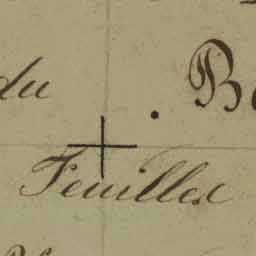 du
Feuilles